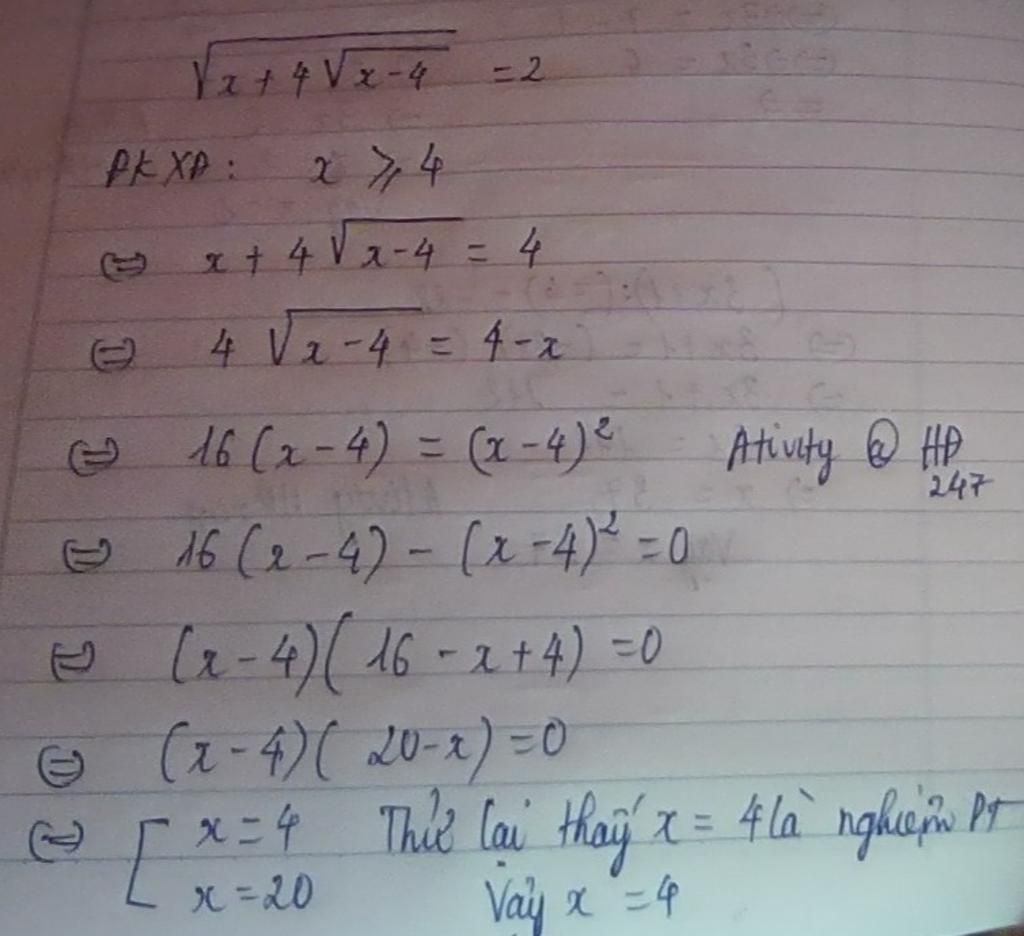 √(x + 4√(x-4)) = 2
ĐKXĐ: x ⩾ 4
⇔ x + 4√(x-4) = 4
⇔ 4√(x-4) = 4-x
⇔ 16(x-4) = (x-4)² Ativity @ HĐ 247
⇔ 16(x-4) - (x-4)² = 0
⇔ (x-4)(16-x+4) = 0
⇔ (x-4)(20-x) = 0
⇔ [ x = 4 Thử lại thấy x = 4 là nghiệm PT
x = 20 Vậy x = 4